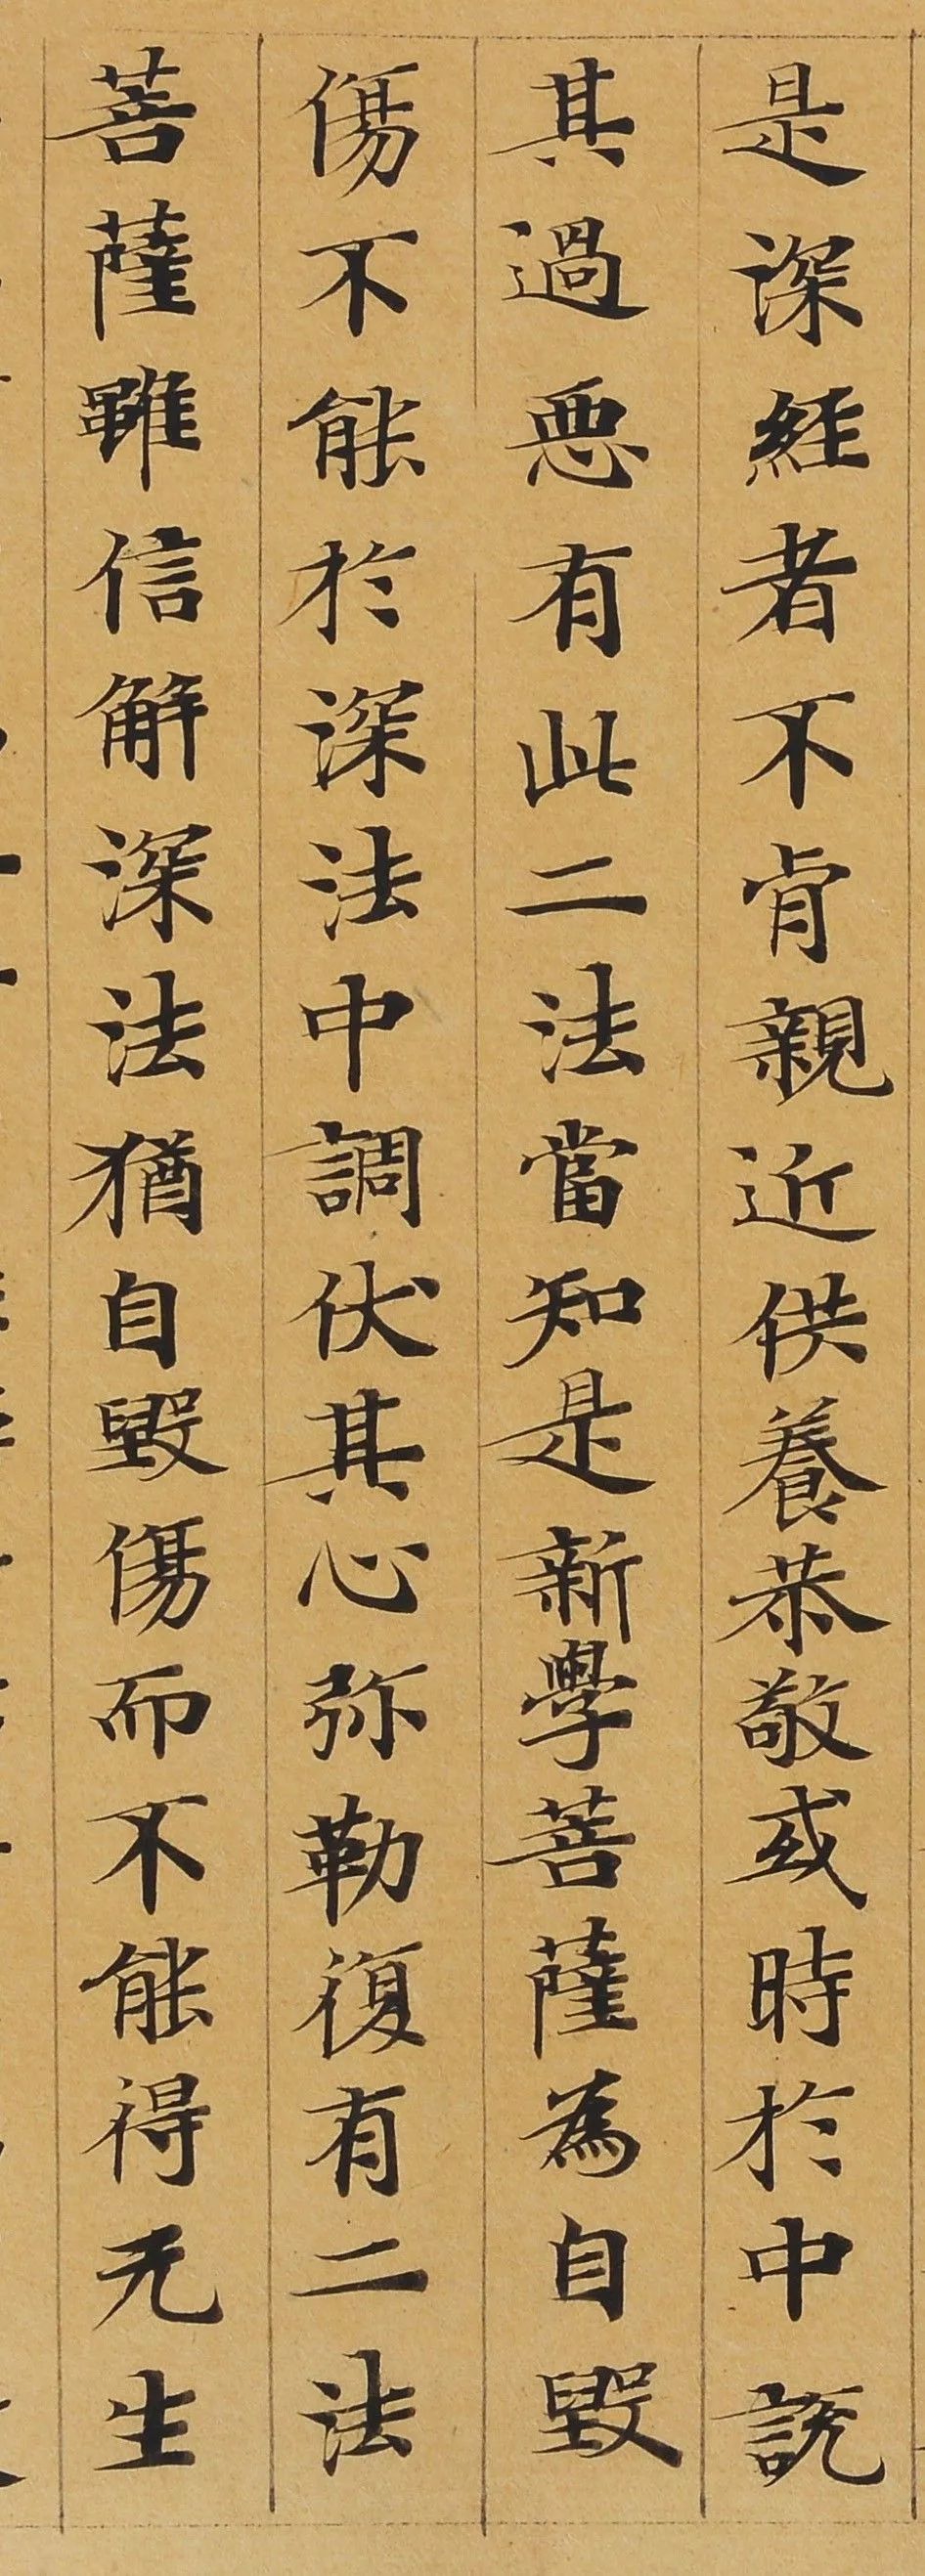 是深經者不肯親近供養恭敬或時於中說
其過惡有此二法當知是新學菩薩為自毀
傷不能於深法中調伏其心弥勒復有二法
菩薩雖信解深法猶自毀傷而不能得无生